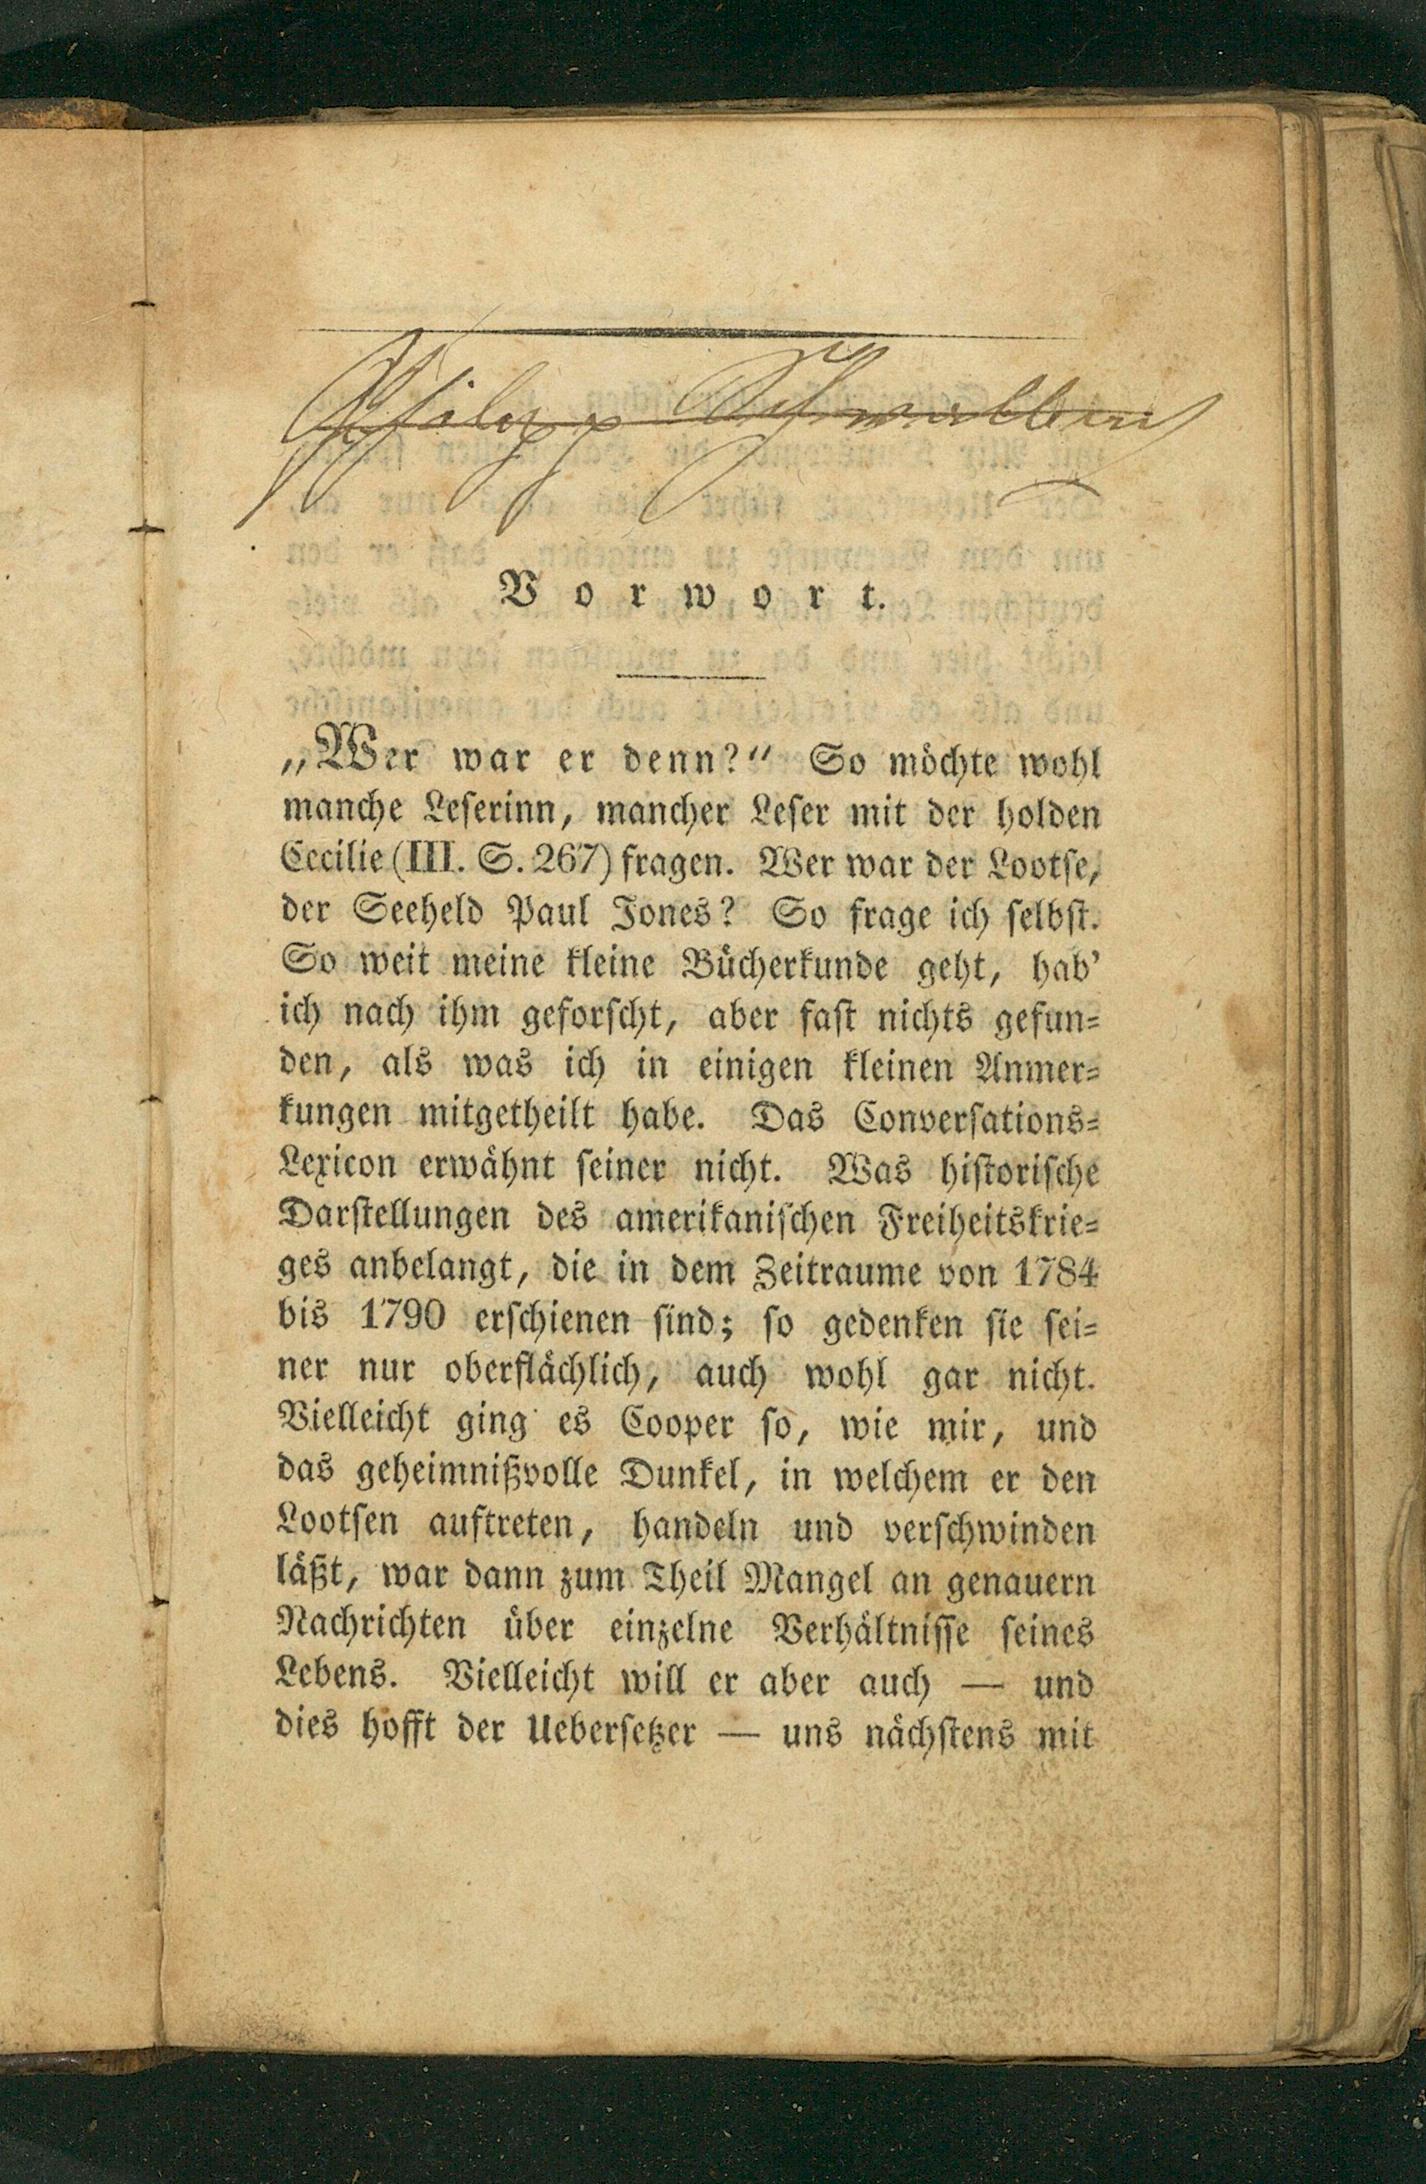 Philipp
Vorwort.
„Wer war er denn?“ So möchte wohl
manche Leserinn, mancher Leser mit der holden
Cecilie (III. S. 267) fragen. Wer war der Lootse,
der Seeheld Paul Jones? So frage ich selbst.
So weit meine kleine Bücherkunde geht, hab’
ich nach ihm geforscht, aber fast nichts gefun-
den, als was ich in einigen kleinen Anmer-
kungen mitgetheilt habe. Das Conversations-
Lexicon erwähnt seiner nicht. Was historische
Darstellungen des amerikanischen Freiheitskrie-
ges anbelangt, die in dem Zeitraume von 1784
bis 1790 erschienen sind; so gedenken sie sei-
ner nur oberflächlich, auch wohl gar nicht.
Vielleicht ging es Cooper so, wie mir, und
das geheimnißvolle Dunkel, in welchem er den
Lootsen auftreten, handeln und verschwinden
läßt, war dann zum Theil Mangel an genauern
Nachrichten über einzelne Verhältnisse seines
Lebens. Vielleicht will er aber auch — und
dies hofft der Uebersetzer — uns nächstens mit